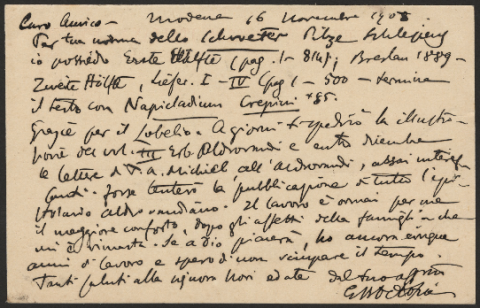 Caro Amico - Modena 16 Novembre 1908
Per tua norma dello Schroeter Pilze Schlesiens
io possiedo Erste Hälfte (pag. 1-814, Breslau 1889 -
Zweite Hälfte, Liefer. I - IV (pag 1 - 500 - termina
il testo con Napicladium Crepini + 85.
Grazie per il Lobelio. A giorni ti spedirò la illustra-
zione del vol. III Erb. Aldrovandi e entro dicembre
le lettere di P. A. Michiel all'Aldrovandi, assai interes-
santi. Forse tenterò la pubblicazione di tutto l'epi-
stolario aldrovandiano. Il lavoro è ormai per me
il maggiore conforto, dopo gli affetti della famiglia che
mi è rimasta. Se a Dio piacerà, ho ancora cinque
anni di lavoro e spero di non sciupare il tempo.
Tanti saluti alla signora Nori ed a te dal tuo aff.mo